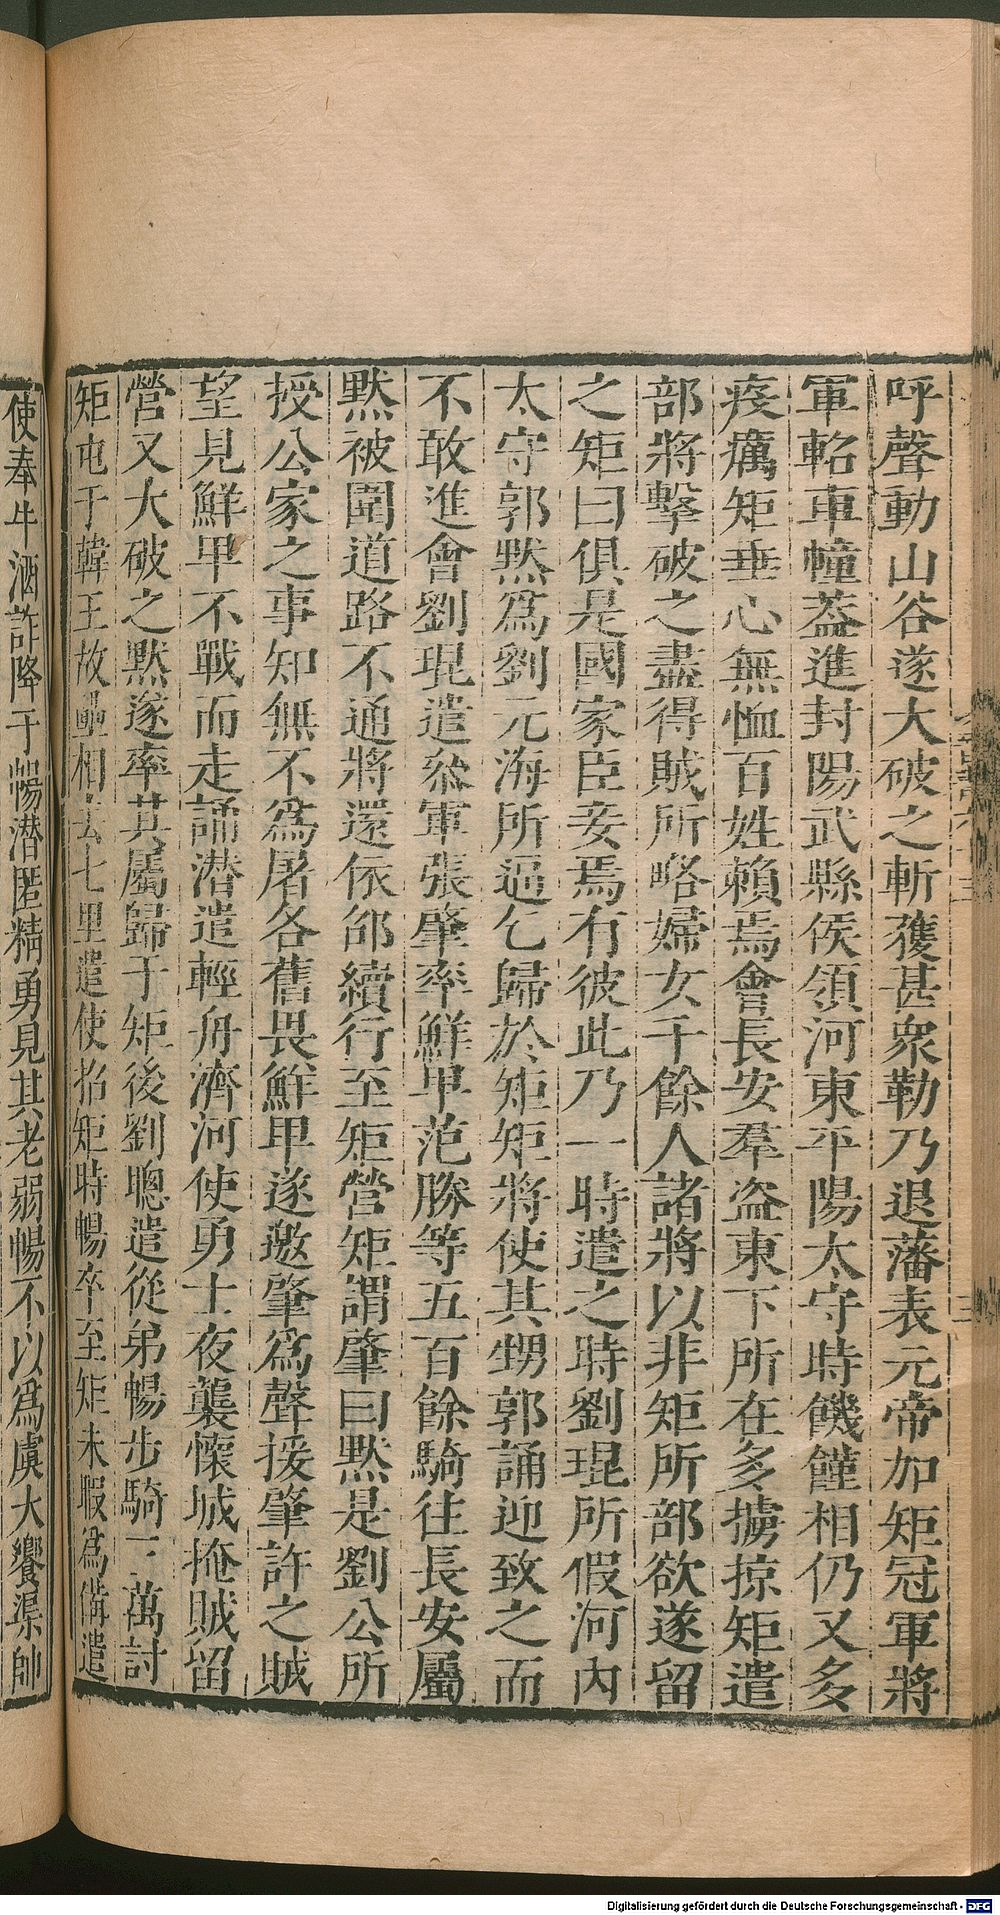 呼聲動山谷遂大破之斬獲甚衆勒乃退藩表元帝加矩冠軍將
軍軺車幢葢進封陽武縣侯領河東平陽太守時饑饉相仍又多
疫癘矩垂心無恤百姓賴焉會長安羣盗東下所在多擄掠矩遣
部將擊破之盡得賊所略婦女千餘人諸將以非矩所部欲遂留
之矩曰俱是國家臣妾焉有彼此乃一時遣之時劉琨所假河内
太守郭黙爲劉元海所逼乞歸於矩矩將使其甥郭誦迎致之而
不敢進會劉琨遣叅軍張肇率鮮卑范勝等五百餘騎往長安屬
黙被圍道路不通將還依邵續行至矩營矩謂肇曰黙是劉公所
授公家之事知無不爲屠各舊畏鮮卑遂邀肇爲聲接肇許之賊
望見鮮卑不戰而走誦潜遣輕舟濟河使勇士夜襲懷城掩賊留
營又大破之黙遂率其屬歸于矩後劉聰遣從弟暢步騎三萬討
矩屯于韓王故壘相去七里遣使招矩時暢卒至矩未暇爲備遣
使奉牛酒詐降于暢潜匿精勇見其老弱暢不以爲虞大饗渠帥
Digitalisierung gefördert durch die Deutsche Forschungsgemeinschaft - DFG